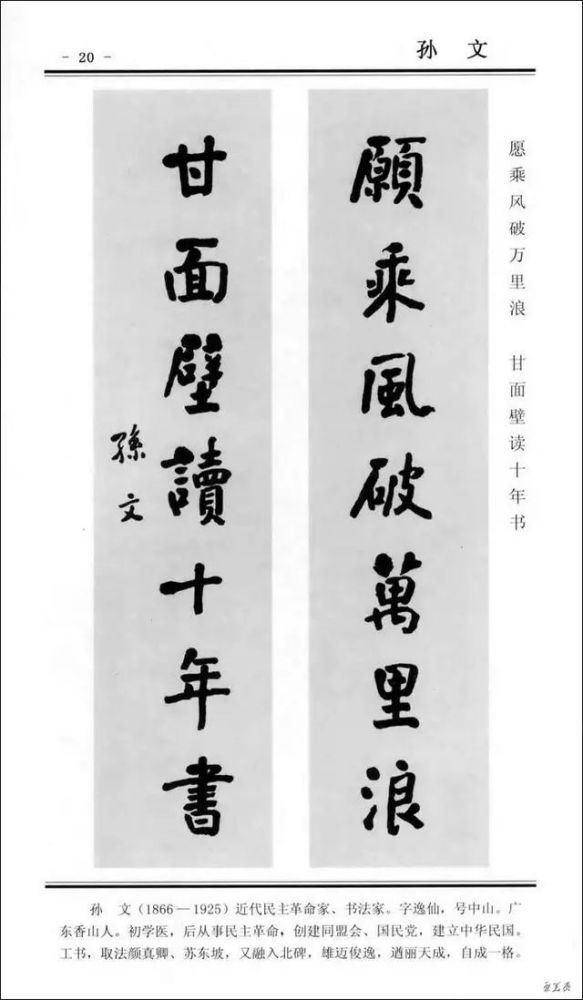 - 20 -
孙 文
願乘風破萬里浪
甘面壁讀十年書
孫文
愿乘风破万里浪 甘面壁读十年书
孙 文（1866—1925）近代民主革命家、书法家。字逸仙，号中山。广
东香山人。初学医，后从事民主革命，创建同盟会、国民党，建立中华民国。
工书，取法颜真卿、苏东坡，又融入北碑，雄迈俊逸，遒丽天成，自成一格。